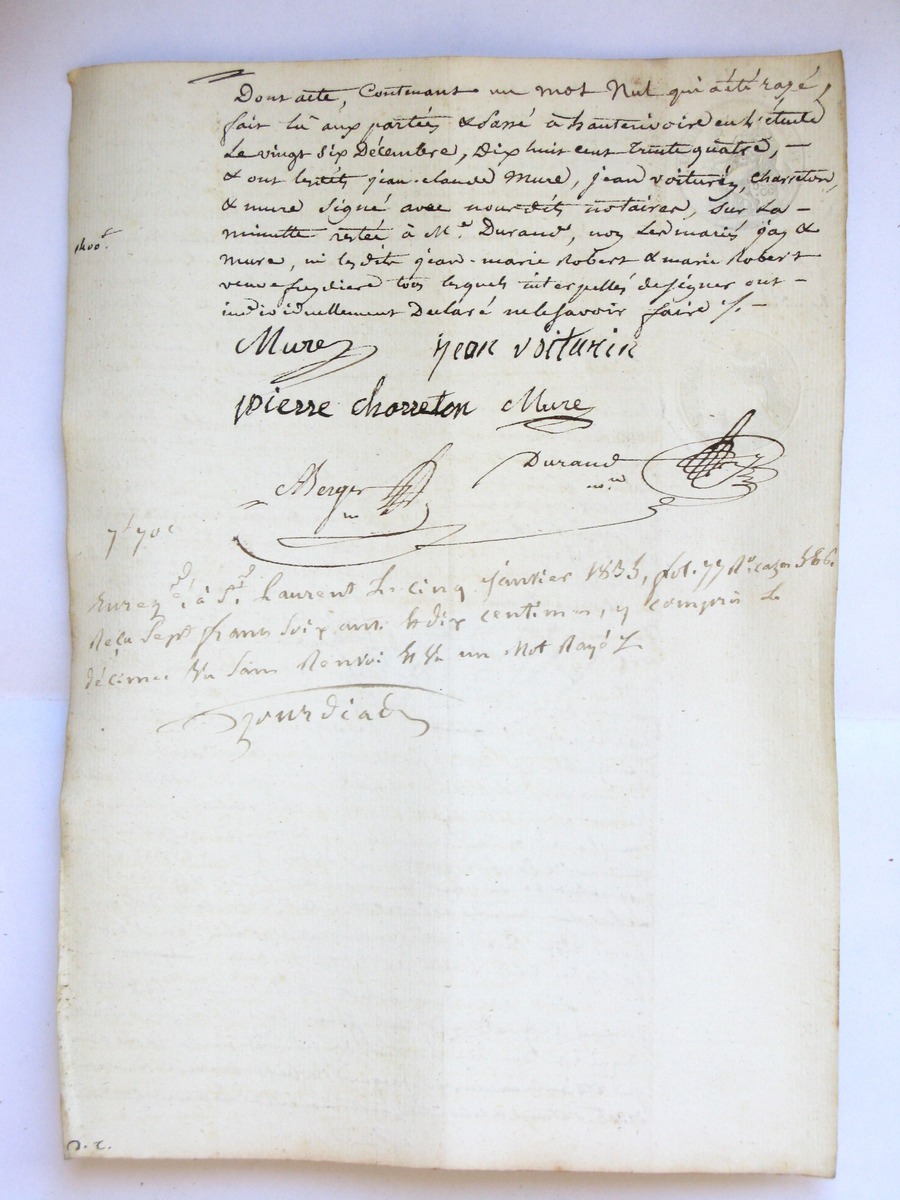 Dont acte, Contenant un mot Nul qui a été rayé,
fait lû aux parties & Passé à hauterivoire en l'étude
Le vingt six Décembre, Dix huit cent trente quatre, —
& ont lesdits jean-claude Mure, jean voiturin, charreton,
& mure signé avec nousdits notaires, sur La —
minutte restée à Me. Durand, non Les mariés jay &
1400f.
Mure, ni lesdits jean-marie Robert & marie Robert
veuve tous lesquels interpellés de signer ont —
individuellement Déclaré ne le savoir faire /. —
Mure jean voiturin
pierre charreton Mure
Merger Durand
nre
7f 70c
Enregé. à St. Laurent Le cinq janvier 1835, fol. 77 Ro.
Reçu Sept francs soixante & dix centimes, y compris Le
décime Vu sans Renvoi & Vu un Mot Rayé
Jourdia